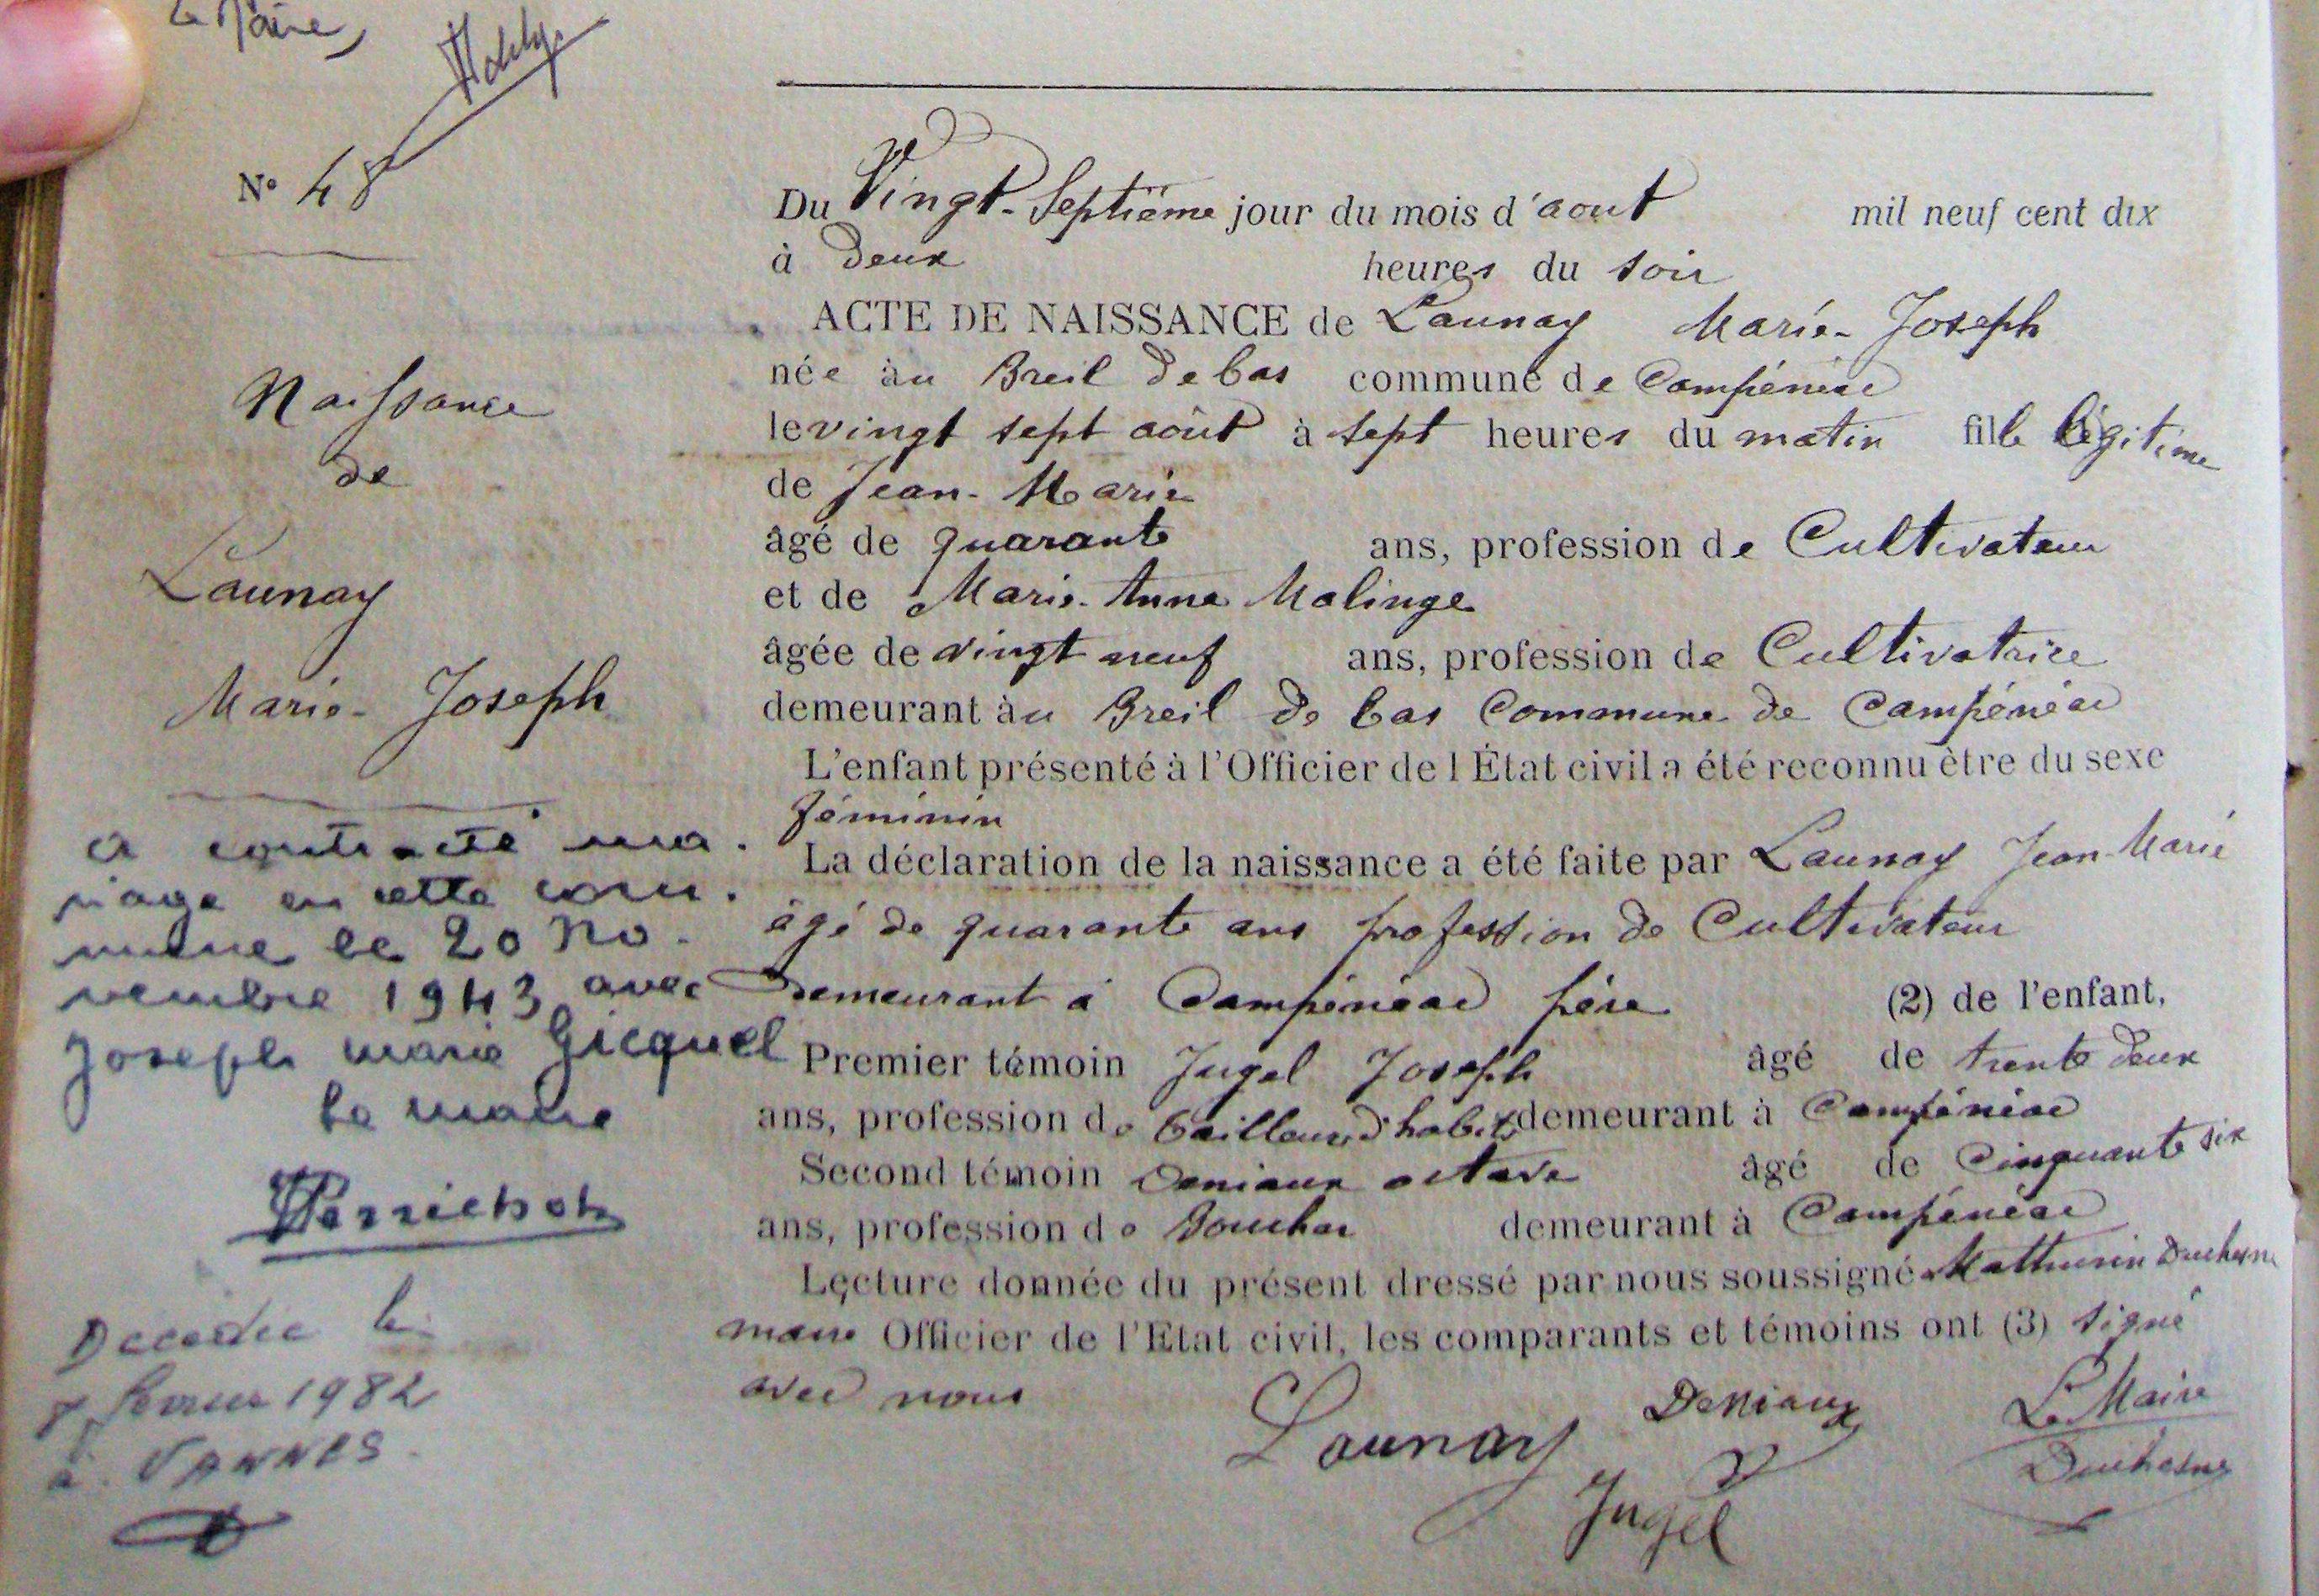 Le Maire,
N° 48
Naissance
de
Launay
Marie-Joseph
a contracté ma-
riage en cette com-
mune le 20 no-
vembre 1943 avec
Joseph Marie Gicquel
Le maire
Perrichot
Décédée le
février 1982
à VANNES
Du Vingt-Septième jour du mois d'aout mil neuf cent dix
à Deux heures du soir
ACTE DE NAISSANCE de Launay Marie-Joseph
née àu Breil de bas commune de Campénéac
le vingt sept août à sept heures du matin fille légitime
de Jean-Marie
âgé de quarante ans, profession de Cultivateur
et de Marie-Anne Malinge
âgée de vingt neuf ans, profession de Cultivatrice
demeurant àu Breil de bas Commune de Campénéac
L'enfant présenté à l'Officier de l État civil a été reconnu être du sexe
féminin
La déclaration de la naissance a été faite par Launay Jean-Marie
âgé de quarante ans profession de Cultivateur
Demeurant à Campénéac père (2) de l'enfant,
Premier témoin Jugel Joseph âgé de trente deux
ans, profession de tailleur d'habits demeurant à Campénéac
Second témoin Deniaux octave âgé de Cinquante six
ans, profession de Boucher demeurant à Campénéac
Lecture donnée du présent dressé par nous soussigné Mathurin Duchesne
maire Officier de l'Etat civil, les comparants et témoins ont (3) signé
avec nous
Launay Deniaux Le Maire
Jugel Duchesne